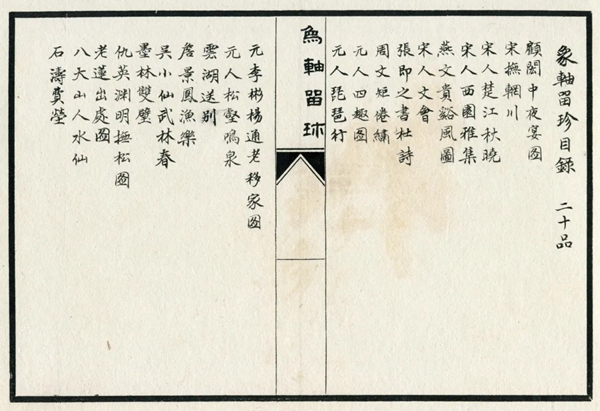 象軸留珍目錄 二十品
顧閎中夜宴圖
宋撫輞川
宋人楚江秋曉
宋人西園雅集
燕文貴谿風圖
宋人文會
張即之書杜詩
周文矩倦繡
元人四趣圖
元人琵琶行
象軸留珎
元李彬楊通老移家圖
元人松壑鳴泉
雲湖送別
詹景鳳漁樂
吳小仙武林春
墨林雙璧
仇英淵明撫松圖
老蓮出處圖
八大山人水仙
石濤費塋